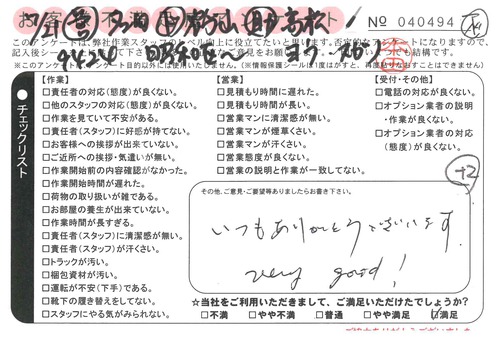 No 040494
このアンケートは、弊社作業スタッフのレベル向上に役立てたいと思います。否定的なアンケートになりますので、
【作業】
□責任者の対応(態度)が良くない。
□他のスタッフの対応(態度)が良くない。
□作業を見ていて不安がある。
□責任者(スタッフ)に好感が持てない。
□お客様への挨拶が出来ていない。
□ご近所への挨拶・気遣いが無い。
□作業開始前の内容確認がなかった。
□作業開始時間が遅れた。
□荷物の取り扱いが雑である。
□お部屋の養生が出来ていない。
□作業時間が長すぎる。
□責任者(スタッフ)に清潔感が無い。
□責任者(スタッフ)が汗くさい。
□トラックが汚い。
□梱包資材が汚い。
□運転が不安(下手)である。
□靴下の履き替えをしてない。
□スタッフにやる気がみられない。
【営業】
□見積もり時間に遅れた。
□見積もり時間が長い。
□営業マンに清潔感が無い。
□営業マンが煙草くさい。
□営業マンが汗くさい。
□営業態度が良くない。
□営業の説明と作業が一致してない。
【受付・その他】
□電話の対応が良くない。
□オプション業者の説明
・作業が良くない。
□オプション業者の対応
(態度)が良くない。
チェックリスト
+2
その他、ご意見・ご要望等ありましたらお書き下さい。
いつもありがとうございます。
very good!
☆当社をご利用いただきまして、ご満足いただけたでしょうか?
□不満 □やや不満 □普通 □やや満足 ☑満足